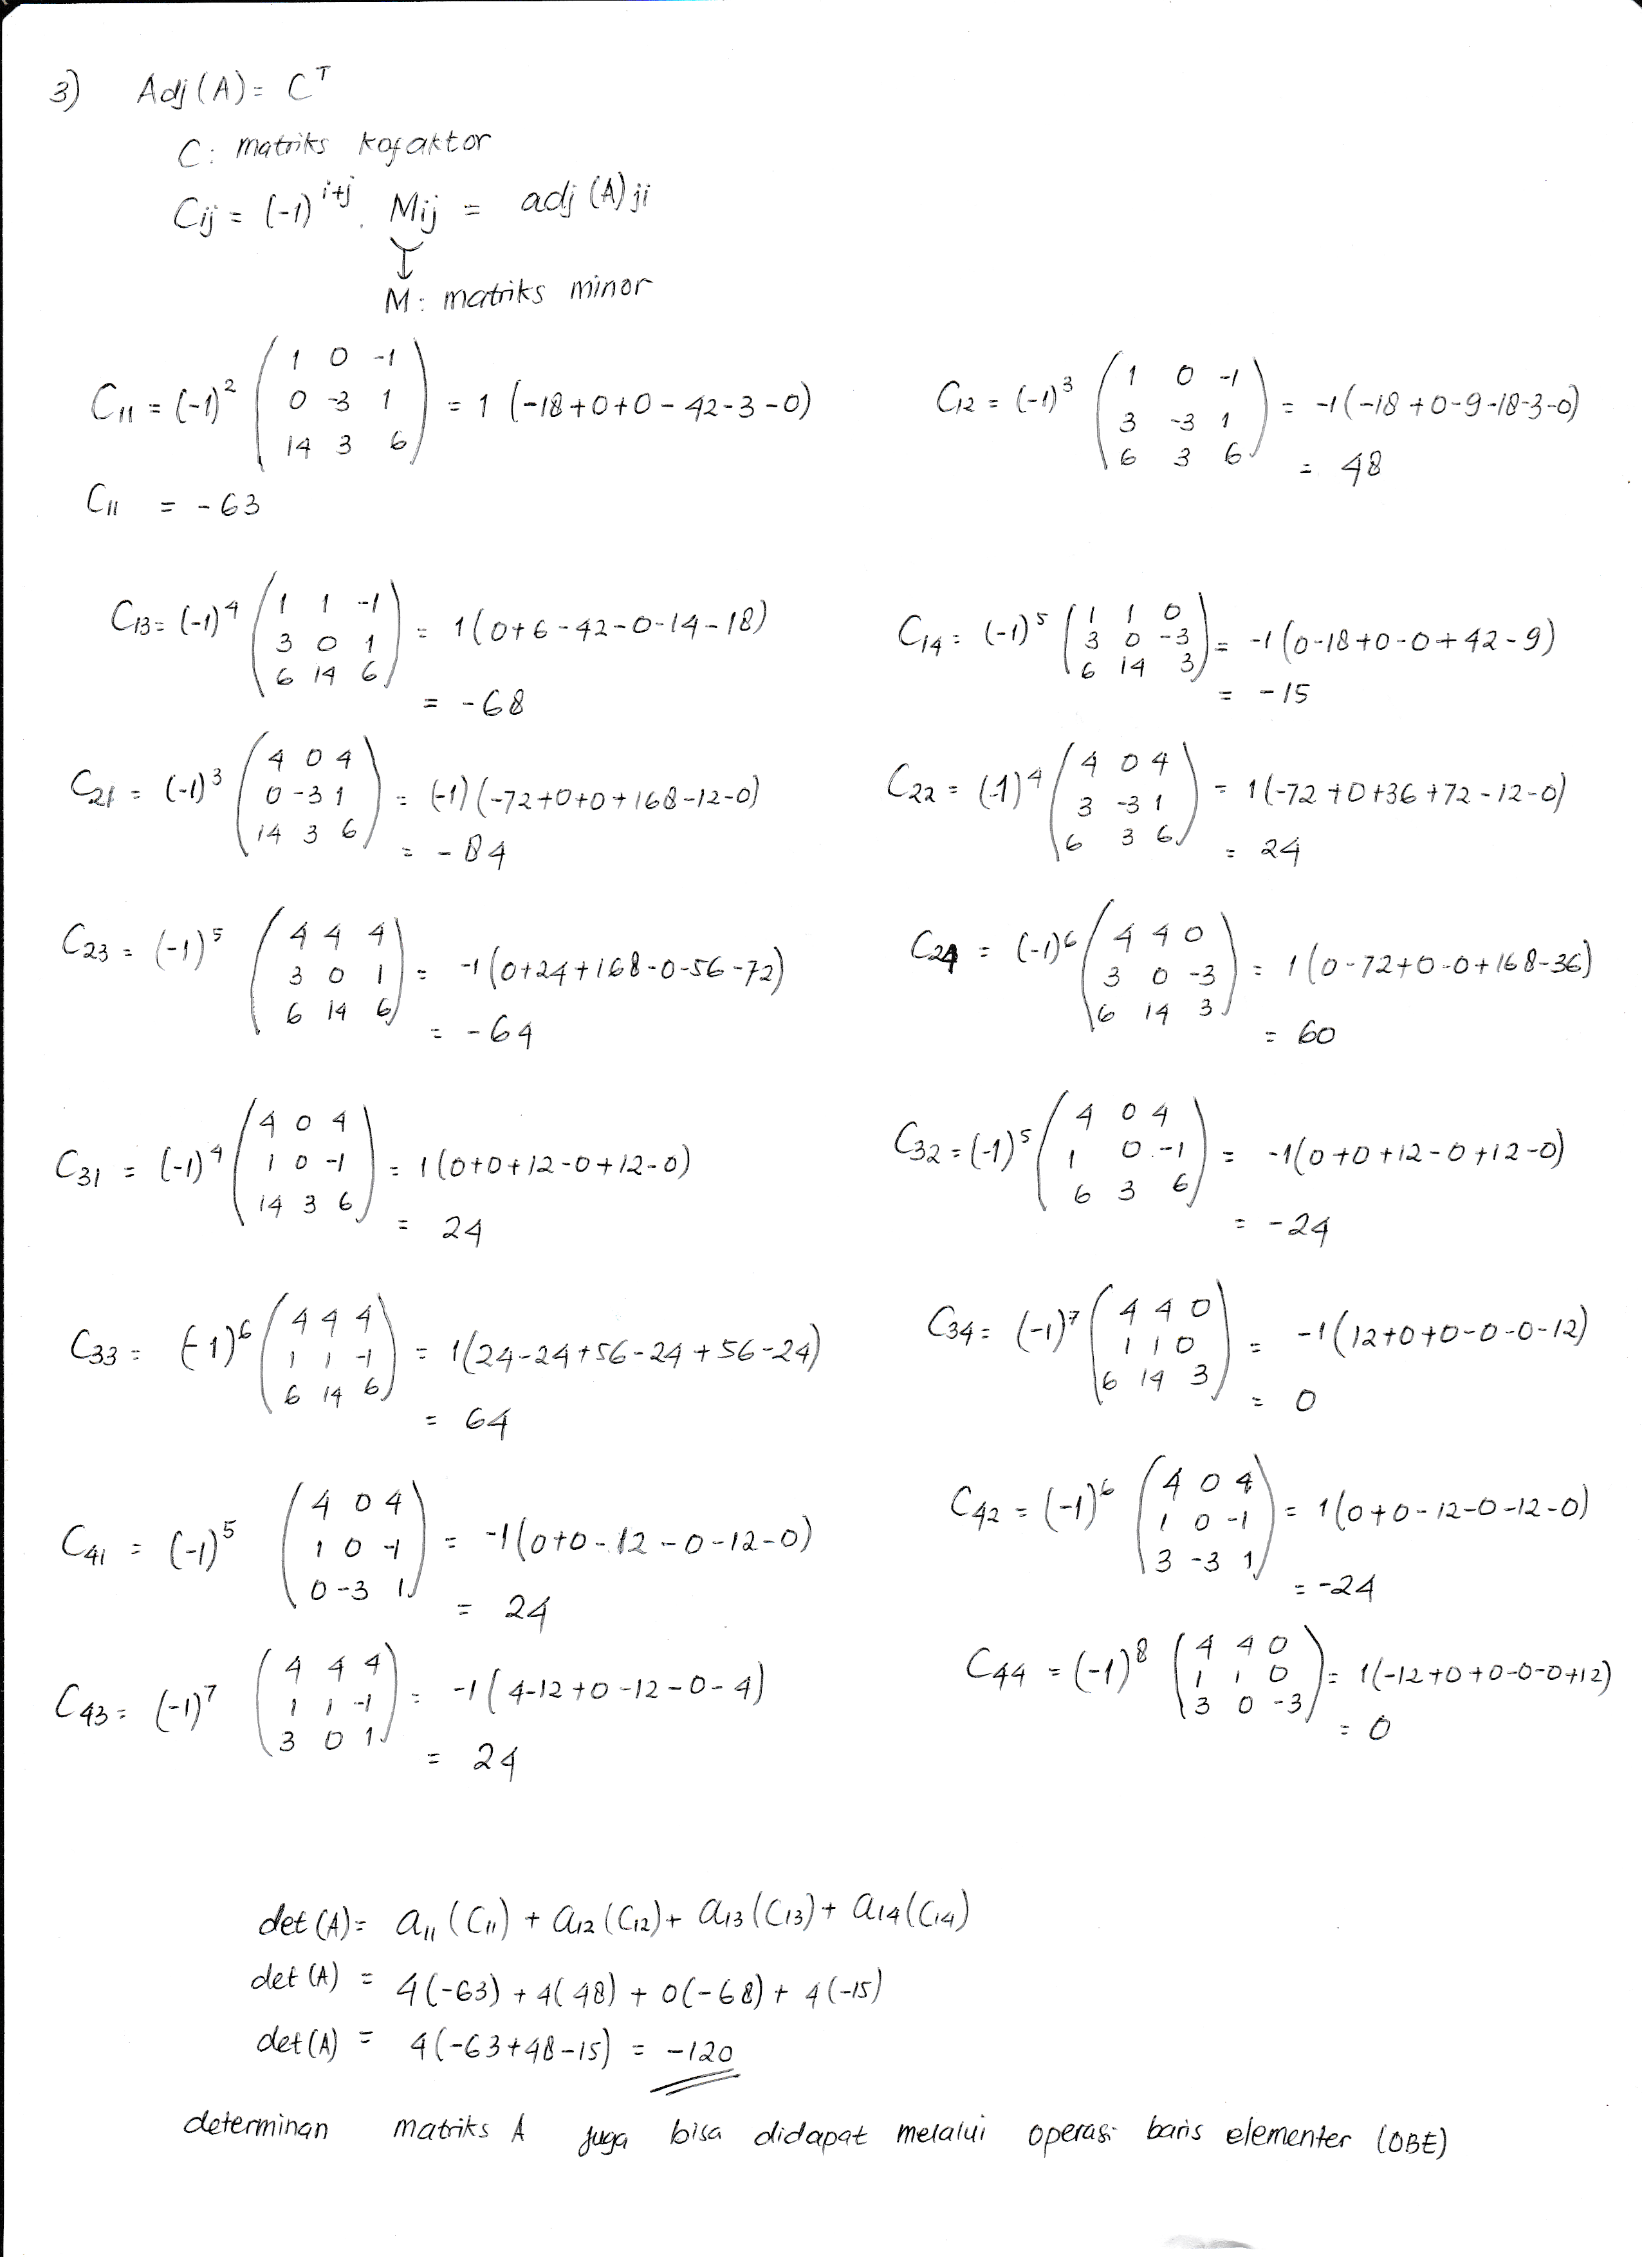 3) Adj(A) = C^T
C: matriks kofaktor
Cij = (-1)^i+j . Mij = adj (A) ji
M: matriks minor
C11 = (-1)^2 ( 1 0 -1
0 -3 1
14 3 6 ) = 1 (-18+0+0-42-3-0)
C11 = -63
C12 = (-1)^3 ( 1 0 -1
3 -3 1
6 3 6 ) = -1(-18+0-9-18-3-0)
= 48
C13 = (-1)^4 ( 1 1 -1
3 0 1
6 14 6 ) = 1(0+6-42-0-14-18)
= -68
C14 = (-1)^5 ( 1 1 0
3 0 -3
6 14 3 ) = -1(0-18+0-0+42-9)
= -15
C21 = (-1)^3 ( 4 0 4
0 -3 1
14 3 6 ) = (-1)(-72+0+0+168-12-0)
= -84
C22 = (-1)^4 ( 4 0 4
3 -3 1
6 3 6 ) = 1(-72+0+36+72-12-0)
= 24
C23 = (-1)^5 ( 4 4 4
3 0 1
6 14 6 ) = -1(0+24+168-0-56-72)
= -64
C24 = (-1)^6 ( 4 4 0
3 0 -3
6 14 3 ) = 1(0-72+0-0+168-36)
= 60
C31 = (-1)^4 ( 4 0 4
1 0 -1
14 3 6 ) = 1(0+0+12-0+12-0)
= 24
C32 = (-1)^5 ( 4 0 4
1 0 -1
6 3 6 ) = -1(0+0+12-0+12-0)
= -24
C33 = (-1)^6 ( 4 4 4
1 1 -1
6 14 6 ) = 1(24-24+56-24+56-24)
= 64
C34 = (-1)^7 ( 4 4 0
1 1 0
6 14 3 ) = -1(12+0+0-0-0-12)
= 0
C41 = (-1)^5 ( 4 0 4
1 0 -1
0 -3 1 ) = -1(0+0-12-0-12-0)
= 24
C42 = (-1)^6 ( 4 0 4
1 0 -1
3 -3 1 ) = 1(0+0-12-0-12-0)
= -24
C43 = (-1)^7 ( 4 4 4
1 1 -1
3 0 1 ) = -1(4-12+0-12-0-4)
= 24
C44 = (-1)^8 ( 4 4 0
1 1 0
3 0 -3 ) = 1(-12+0+0-0-0+12)
= 0
det(A) = a11 (C11) + a12 (C12) + a13 (C13) + a14 (C14)
det(A) = 4(-63) + 4(48) + 0(-68) + 4(-15)
det(A) = 4(-63+48-15) = -120
determinan matriks A juga bisa didapat melalui operasi baris elementer (OBE)